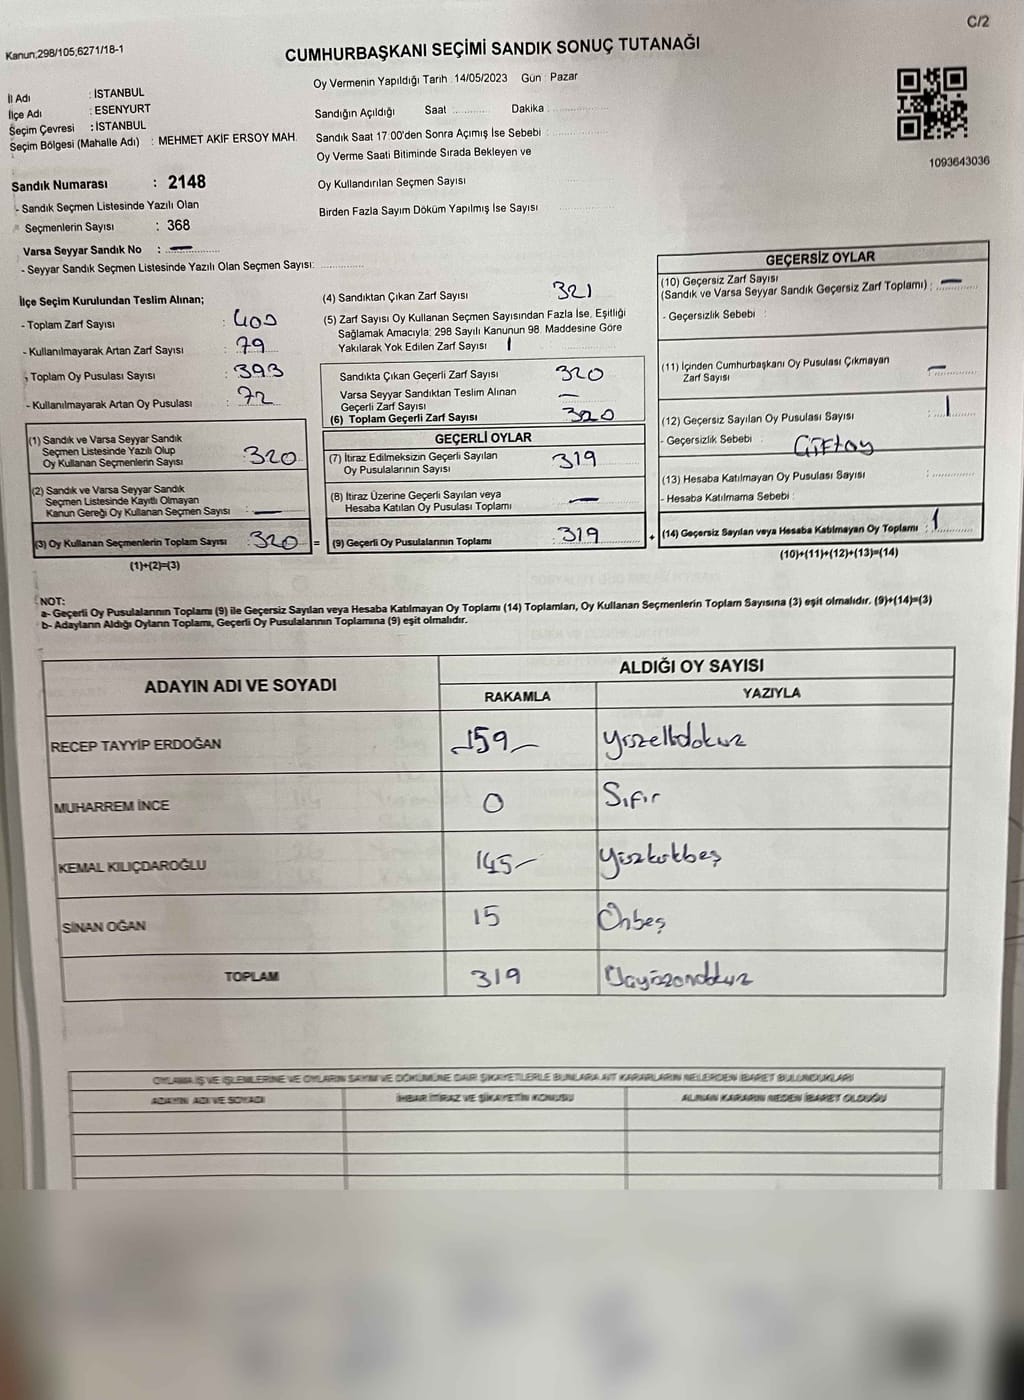 C/2
Kanun;298/105,6271/18-1
CUMHURBAŞKANI SEÇİMİ SANDIK SONUÇ TUTANAĞI
Oy Vermenin Yapıldığı Tarih : 14/05/2023 Gün : Pazar
İl Adı : İSTANBUL
İlçe Adı : ESENYURT
Seçim Çevresi : İSTANBUL
Seçim Bölgesi (Mahalle Adı) : MEHMET AKİF ERSOY MAH.
Sandığın Açıldığı Saat : Dakika :
Sandık Saat 17:00'den Sonra Açımış İse Sebebi :
Oy Verme Saati Bitiminde Sırada Bekleyen ve
Oy Kullandırılan Seçmen Sayısı
Birden Fazla Sayım Döküm Yapılmış İse Sayısı
1093643036
Sandık Numarası : 2148
- Sandık Seçmen Listesinde Yazılı Olan
Seçmenlerin Sayısı : 368
Varsa Seyyar Sandık No : —
- Seyyar Sandık Seçmen Listesinde Yazılı Olan Seçmen Sayısı:
İlçe Seçim Kurulundan Teslim Alınan;
- Toplam Zarf Sayısı : 400
- Kullanılmayarak Artan Zarf Sayısı : 79
- Toplam Oy Pusulası Sayısı : 393
- Kullanılmayarak Artan Oy Pusulası : 72
(1) Sandık ve Varsa Seyyar Sandık
Seçmen Listesinde Yazılı Olup
Oy Kullanan Seçmenlerin Sayısı : 320
(2) Sandık ve Varsa Seyyar Sandık
Seçmen Listesinde Kayıtlı Olmayan
Kanun Gereği Oy Kullanan Seçmen Sayısı : —
(3) Oy Kullanan Seçmenlerin Toplam Sayısı : 320 =
(1)+(2)=(3)
(4) Sandıktan Çıkan Zarf Sayısı 321
(5) Zarf Sayısı Oy Kullanan Seçmen Sayısından Fazla İse, Eşitliği
Sağlamak Amacıyla; 298 Sayılı Kanunun 98. Maddesine Göre
Yakılarak Yok Edilen Zarf Sayısı 1
Sandıkta Çıkan Geçerli Zarf Sayısı 320
Varsa Seyyar Sandıktan Teslim Alınan
Geçerli Zarf Sayısı —
(6) Toplam Geçerli Zarf Sayısı 320
GEÇERLİ OYLAR
(7) İtiraz Edilmeksizin Geçerli Sayılan
Oy Pusulalarının Sayısı 319
(8) İtiraz Üzerine Geçerli Sayılan veya
Hesaba Katılan Oy Pusulası Toplamı —
(9) Geçerli Oy Pusulalarının Toplamı : 319 +
GEÇERSİZ OYLAR
(10) Geçersiz Zarf Sayısı
(Sandık ve Varsa Seyyar Sandık Geçersiz Zarf Toplamı) : —
- Geçersizlik Sebebi :
(11) İçinden Cumhurbaşkanı Oy Pusulası Çıkmayan
Zarf Sayısı : —
(12) Geçersiz Sayılan Oy Pusulası Sayısı : 1
- Geçersizlik Sebebi : Çiftoy
(13) Hesaba Katılmayan Oy Pusulası Sayısı :
- Hesaba Katılmama Sebebi :
(14) Geçersiz Sayılan veya Hesaba Katılmayan Oy Toplamı : 1
(10)+(11)+(12)+(13)=(14)
NOT:
a- Geçerli Oy Pusulalarının Toplamı (9) ile Geçersiz Sayılan veya Hesaba Katılmayan Oy Toplamı (14) Toplamları, Oy Kullanan Seçmenlerin Toplam Sayısına (3) eşit olmalıdır. (9)+(14)=(3)
b- Adayların Aldığı Oyların Toplamı, Geçerli Oy Pusulalarının Toplamına (9) eşit olmalıdır.
ADAYIN ADI VE SOYADI ALDIĞI OY SAYISI
RAKAMLA YAZIYLA
RECEP TAYYİP ERDOĞAN 159 Yüzellidokuz
MUHARREM İNCE 0 Sıfır
KEMAL KILIÇDAROĞLU 145 Yüzkırkbeş
SİNAN OĞAN 15 Onbeş
TOPLAM 319 Üçyüzondokuz
OYLAMA İŞ VE İŞLEMLERİNE VE OYLARIN SAYIM VE DÖKÜMÜNE DAİR ŞİKAYETLERLE BUNLARA AİT KARARLARIN NELERDEN İBARET BULUNDUKLARI
ADAYIN ADI VE SOYADI İHBAR İTİRAZ VE ŞİKAYETİN KONUSU ALINAN KARARIN NEDEN İBARET OLDUĞU